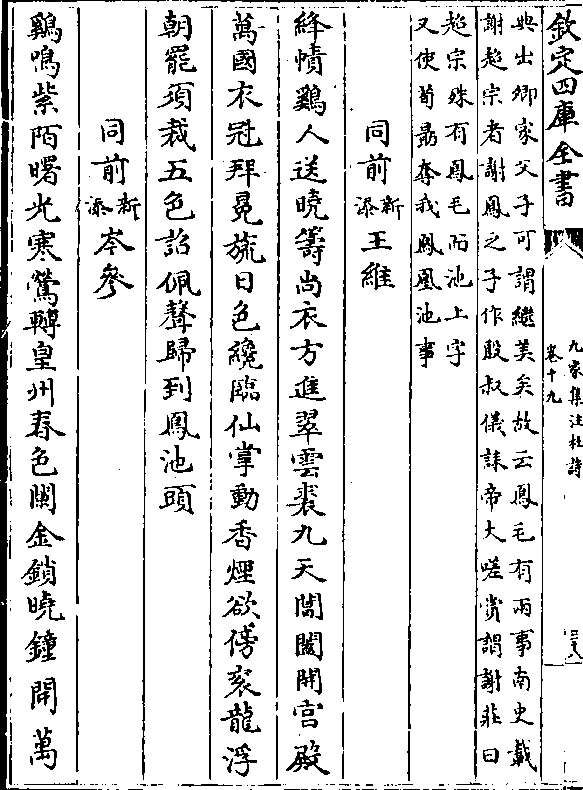 欽定四庫全書
九家集注杜詩
卷十九
三八
典出卿家父子可謂繼美矣故云鳳毛有兩事南史載
謝超宗者謝鳳之子作殷叔儀誄帝大嗟賞謂謝莊曰
超宗殊有鳳毛而池上字
又使荀勗奪我鳳凰池事
同前新添王維
絳幘鷄人送曉籌尚衣方進翠雲裘九天閶闔開宫殿
萬國衣冠拜冕旒日色纔臨仙掌動香煙欲傍衮龍浮
朝罷須裁五色詔佩聲歸到鳳池頭
同前新添岑參
鷄鳴紫陌曙光寒鶯轉皇州春色闌金鎖曉鐘開萬